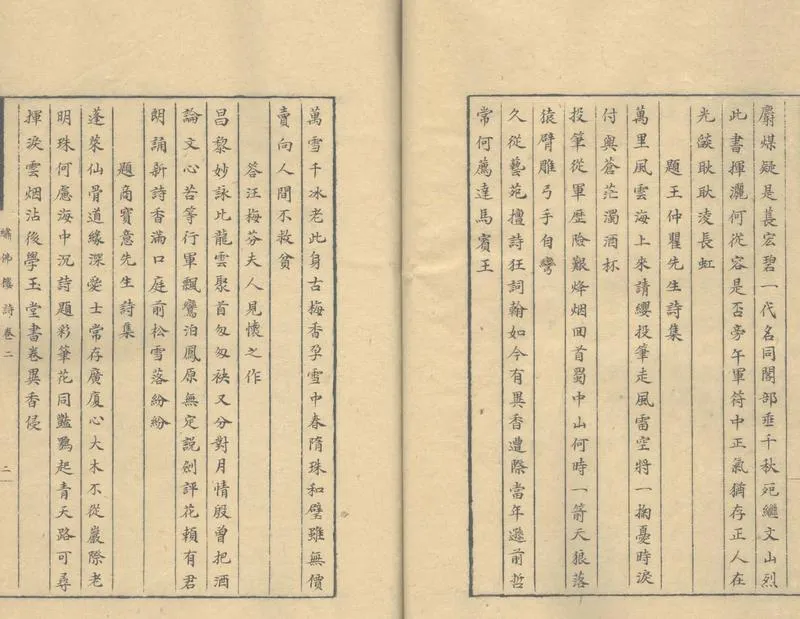 麝煤疑是萇宏碧一代名同閣部垂千秋宛繼文山烈
此書揮灑何從容是否旁午軍符中正氣猶存正人在
光燄耿耿淩長虹
題王仲瞿先生詩集
萬里風雲海上來請纓投筆走風雷空將一掬憂時淚
付與蒼茫濁酒杯
投筆從軍歷險艱烽烟回首蜀中山何時一箭天狼落
猿臂雕弓手自彎
久從藝苑擅詩狂詞翰如今有異香遭際當年遜前哲
常何薦達馬賓王
萬雪千冰老此身古梅香孕雪中春隋珠和璧雖無價
賣向人間不救貧
答汪梅芬夫人見懷之作
昌黎妙詠比龍雲聚首匆匆袂又分對月情殷曾把酒
論文心苦等行軍飄鸞泊鳳原無定説劍評花頼有君
朗誦新詩香滿口庭前松雪落紛紛
題商寶意先生詩集
蓬萊仙骨道緣深愛士常存廣厦心大木不從巖際老
明珠何應海中沉詩題彩筆花同豔鶚起青天路可尋
揮淚雲烟沾後學玉堂書卷異香侵
繡佛樓詩卷二
二